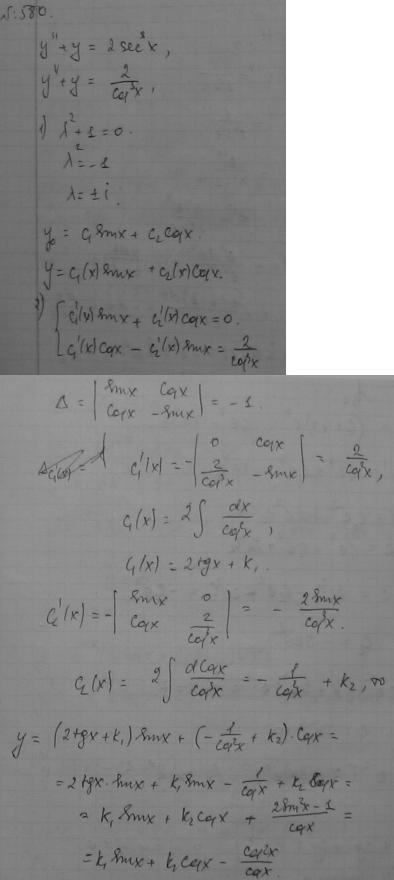 N:580.
y'' + y = 2 sec³x,
y'' + y = 2/cos³x,
1) λ² + 1 = 0.
λ² = -1
λ = ±i.
y₀ = c₁ sinx + c₂ cosx.
y = c₁(x) sinx + c₂(x) cosx.
2) { c₁'(x) sinx + c₂'(x) cosx = 0.
c₁'(x) cosx - c₂'(x) sinx = 2/cos³x
Δ = | sinx cosx ; cosx -sinx | = -1.
c₁'(x) = -| 0 cosx ; 2/cos³x -sinx | = 2/cos²x,
c₁(x) = 2∫ dx/cos²x,
c₁(x) = 2tgx + k₁.
c₂'(x) = -| sinx 0 ; cosx 2/cos³x | = - 2sinx/cos³x.
c₂(x) = 2∫ dcosx/cos³x = - 1/cos²x + k₂, то
y = (2tgx + k₁) sinx + (- 1/cos²x + k₂)·cosx =
= 2tgx·sinx + k₁ sinx - 1/cosx + k₂ cosx =
= k₁ sinx + k₂ cosx + (2sin²x - 1)/cosx =
= k₁ sinx + k₂ cosx - cos2x/cosx.